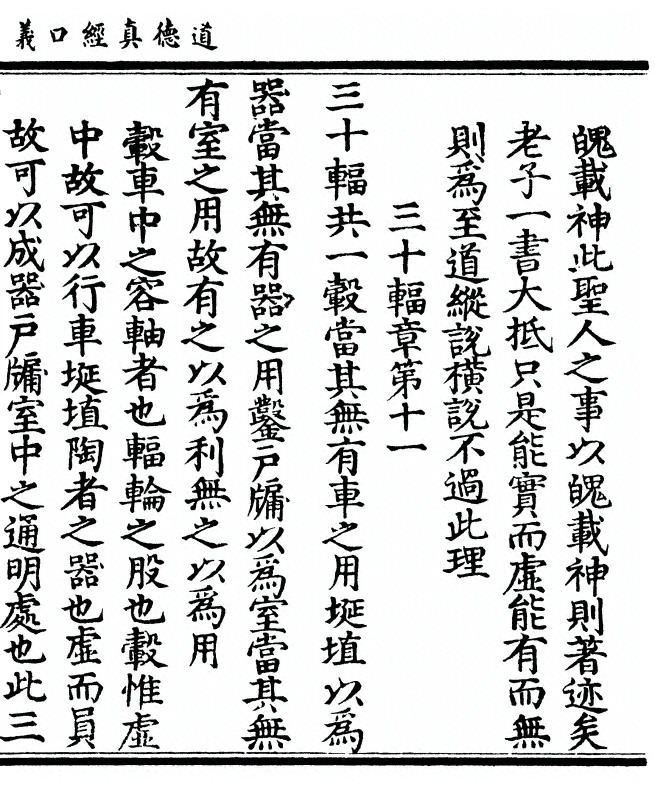 道德真經口義
魄載神此聖人之事以魄載神則著迹矣
老子一書大抵只是能實而虛能有而無
則爲至道縱說橫說不過此理
三十輻章第十一
三十輻共一轂當其無有車之用埏埴以爲
器當其無有器之用鑿戶牖以爲室當其無
有室之用故有之以爲利無之以爲用
轂車中之容軸者也輻輪之股也轂惟虛
中故可以行車埏埴陶者之器也虛而員
故可以成器戶牖室中之通明處也此三